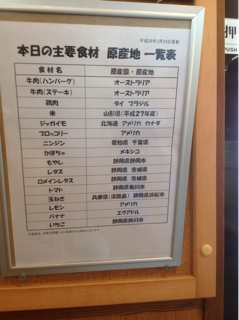 平成28年3月29日更新
本日の主要食材 原産地 一覧表
食材名 原産国・原産地
牛肉(ハンバーグ) オーストラリア
牛肉(ステーキ) オーストラリア
鶏肉 タイ ブラジル
米 山形県(平成27年産)
ジャガイモ 北海道 アメリカ カナダ
ブロッコリー アメリカ
ニンジン 愛知県 千葉県
かぼちゃ メキシコ
もやし 静岡県静岡市
レタス 静岡県 茨城県
ロメインレタス 静岡県 茨城県
トマト 静岡県掛川市
玉ねぎ 兵庫県(淡路島) 静岡県浜松市
レモン アメリカ
バナナ エクアドル
いちご 静岡県掛川市
押
PUSH